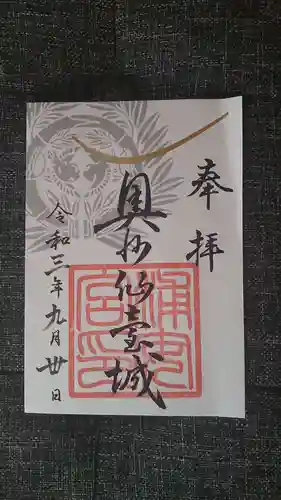 奉拝
奥州仙臺城
令和三年九月卅日